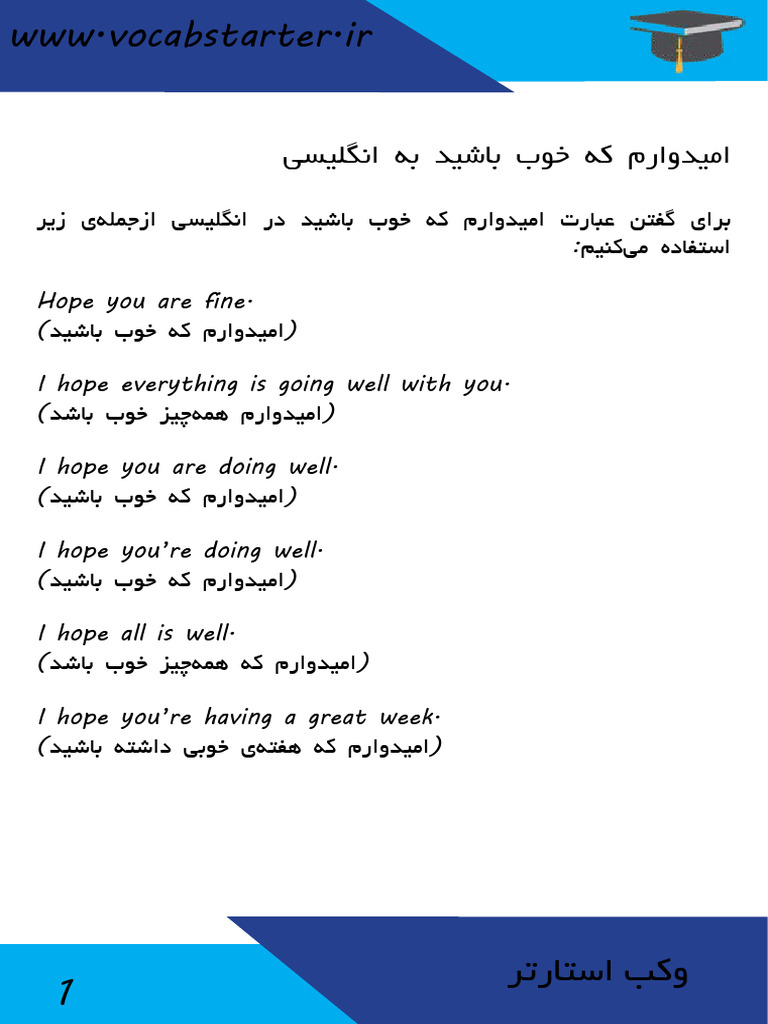 www.vocabstarter.ir
امیدوارم که خوب باشید به انگلیسی
برای گفتن عبارت امیدوارم که خوب باشید در انگلیسی ازجمله‌ی زیر
استفاده می‌کنیم:
Hope you are fine.
(امیدوارم که خوب باشید)
I hope everything is going well with you.
(امیدوارم همه‌چیز خوب باشد)
I hope you are doing well.
(امیدوارم که خوب باشید)
I hope you’re doing well.
(امیدوارم که خوب باشید)
I hope all is well.
(امیدوارم که همه‌چیز خوب باشد)
I hope you’re having a great week.
(امیدوارم که هفته‌ی خوبی داشته باشید)
وکب استارتر
1